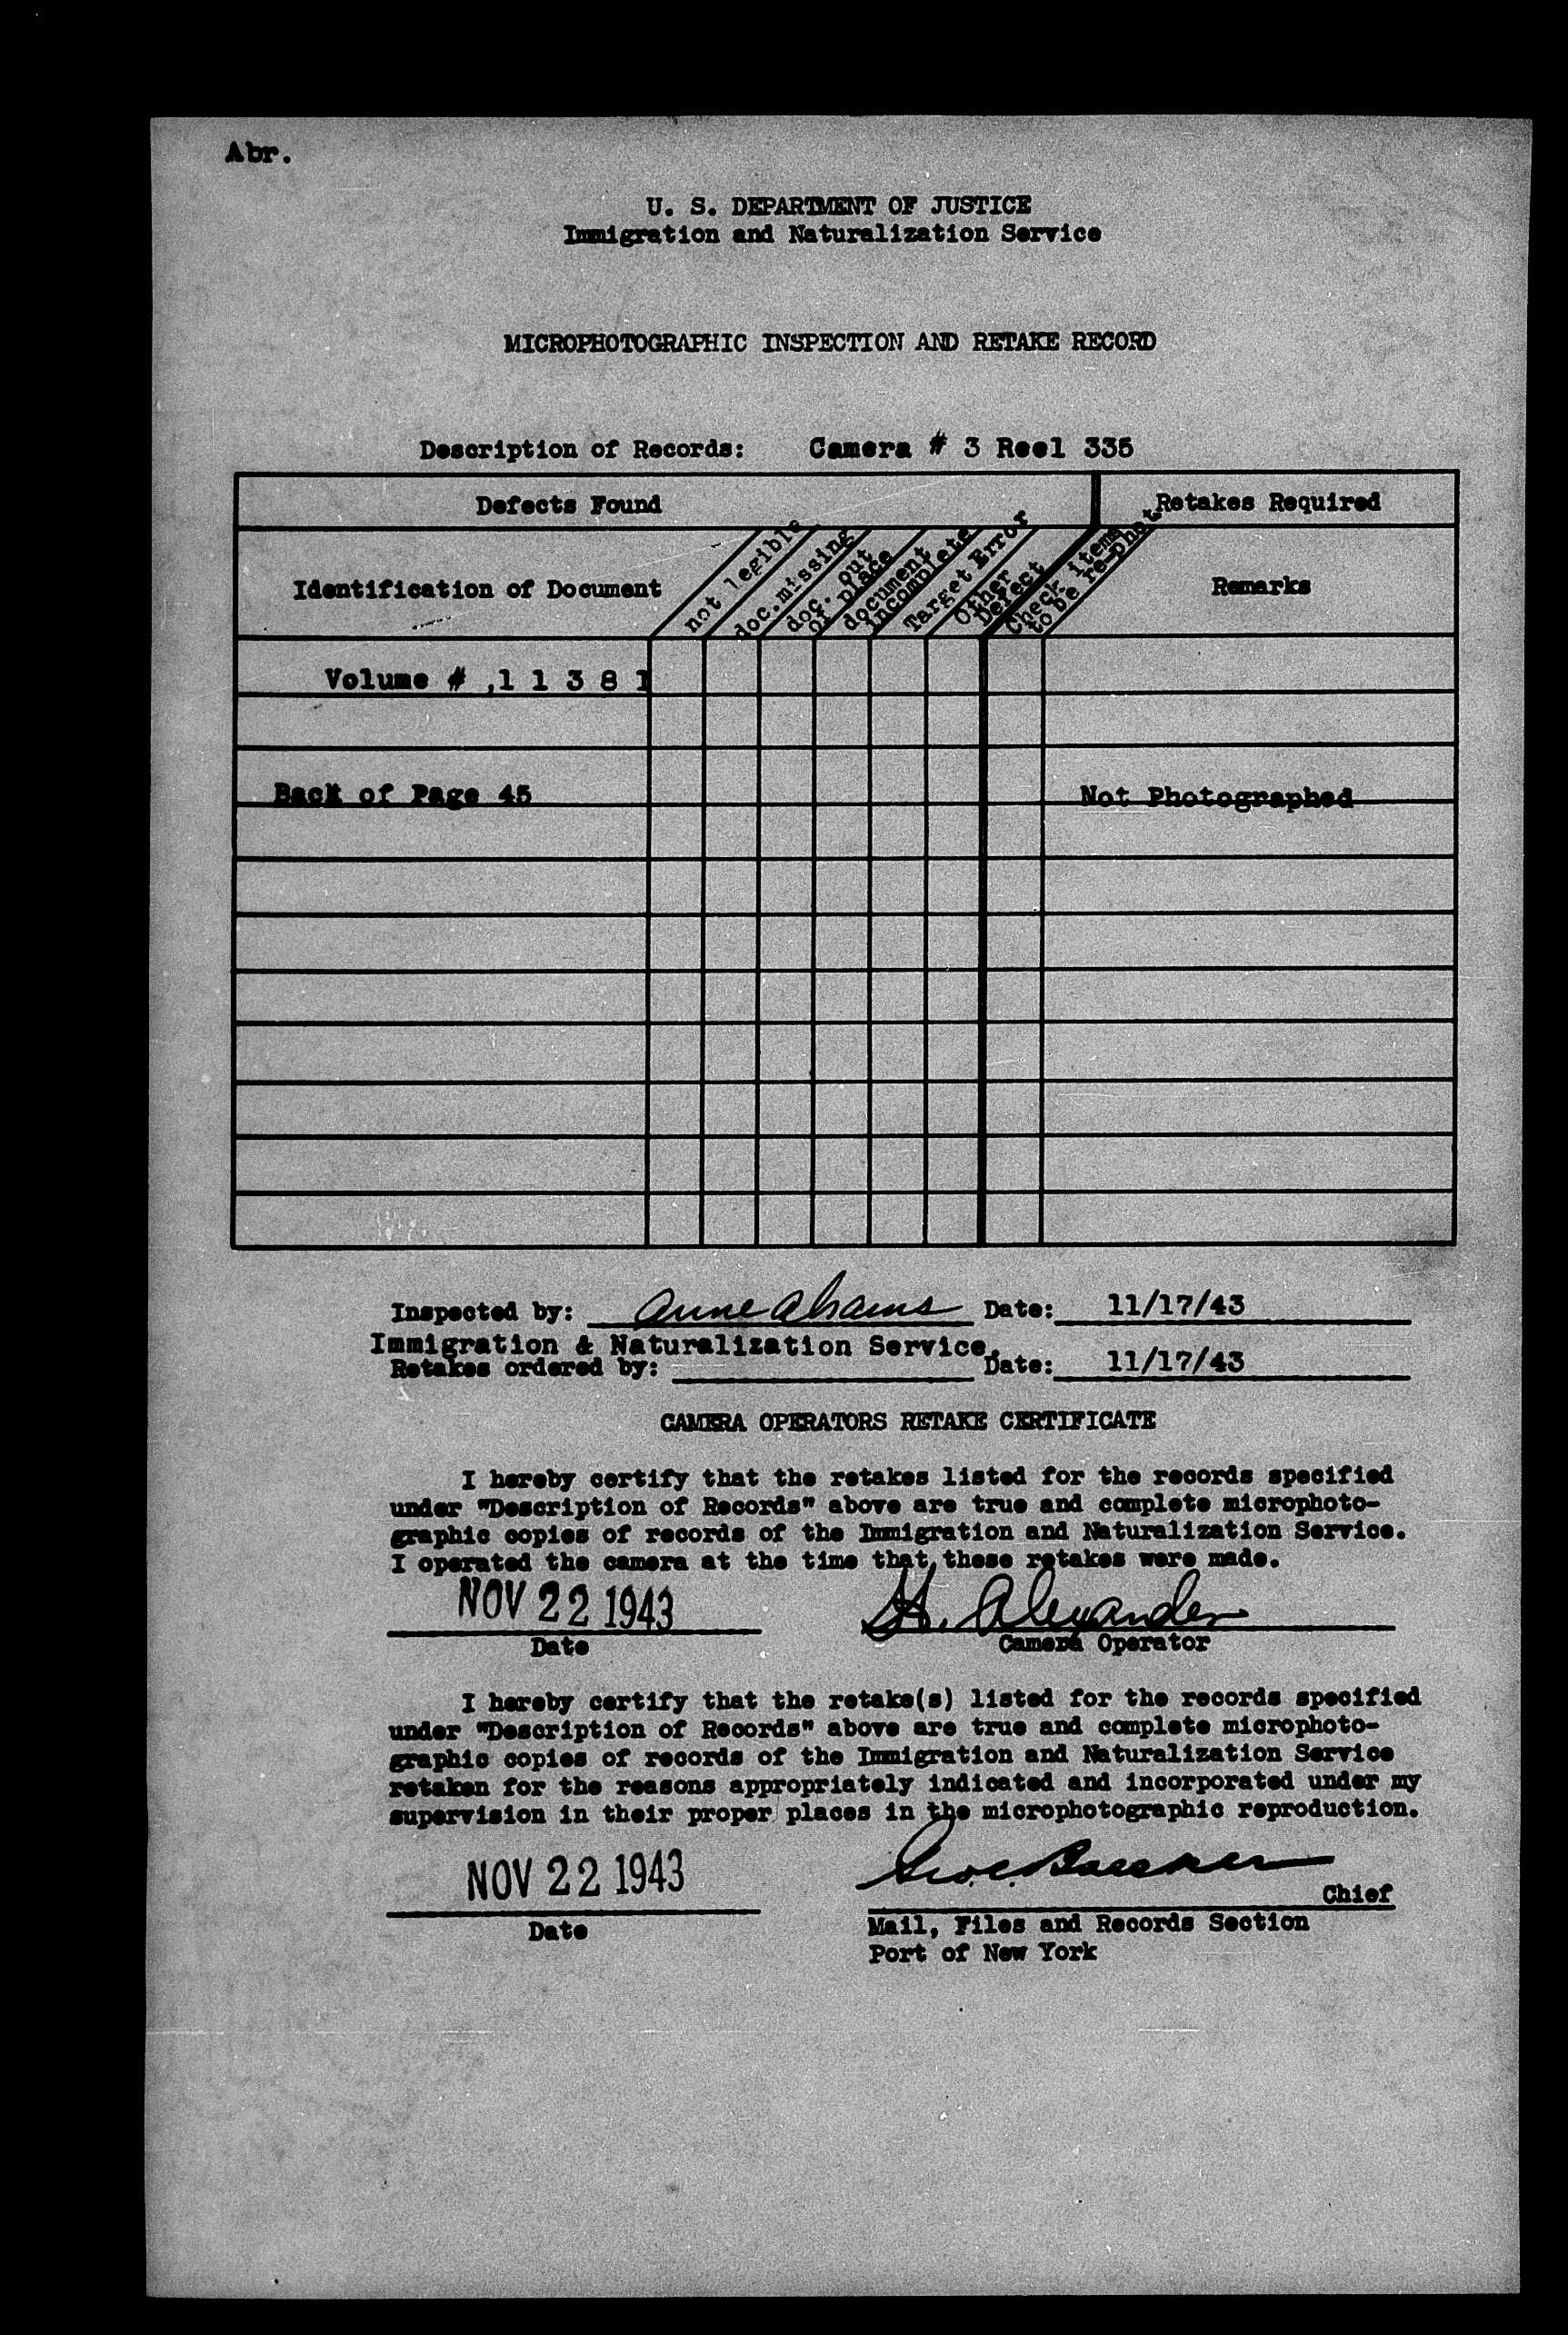 Abr.
U. S. DEPARTMENT OF JUSTICE
Immigration and Naturalization Service
MICROPHOTOGRAPHIC INSPECTION AND RETAKE RECORD
Description of Records: Camera # 3 Reel 335
Defects Found
Retakes Required
Identification of Document
not legible
doc.missing
doc. out
of place
document
incomplete
Target Error
Other
Defect
Check items
to be re-phot.
Remarks
Volume # ,1 1 3 8 1
Back of Page 45
Not Photographed
Inspected by: Anne Abrams Date: 11/17/43
Immigration & Naturalization Service.
Retakes ordered by: Date: 11/17/43
CAMERA OPERATORS RETAKE CERTIFICATE
I hereby certify that the retakes listed for the records specified
under "Description of Records" above are true and complete microphoto-
graphic copies of records of the Immigration and Naturalization Service.
I operated the camera at the time that these retakes were made.
NOV 22 1943 H. Alexander
Date Camera Operator
I hereby certify that the retake(s) listed for the records specified
under "Description of Records" above are true and complete microphoto-
graphic copies of records of the Immigration and Naturalization Service
retaken for the reasons appropriately indicated and incorporated under my
supervision in their proper places in the microphotographic reproduction.
NOV 22 1943
Chief
Date
Mail, Files and Records Section
Port of New York